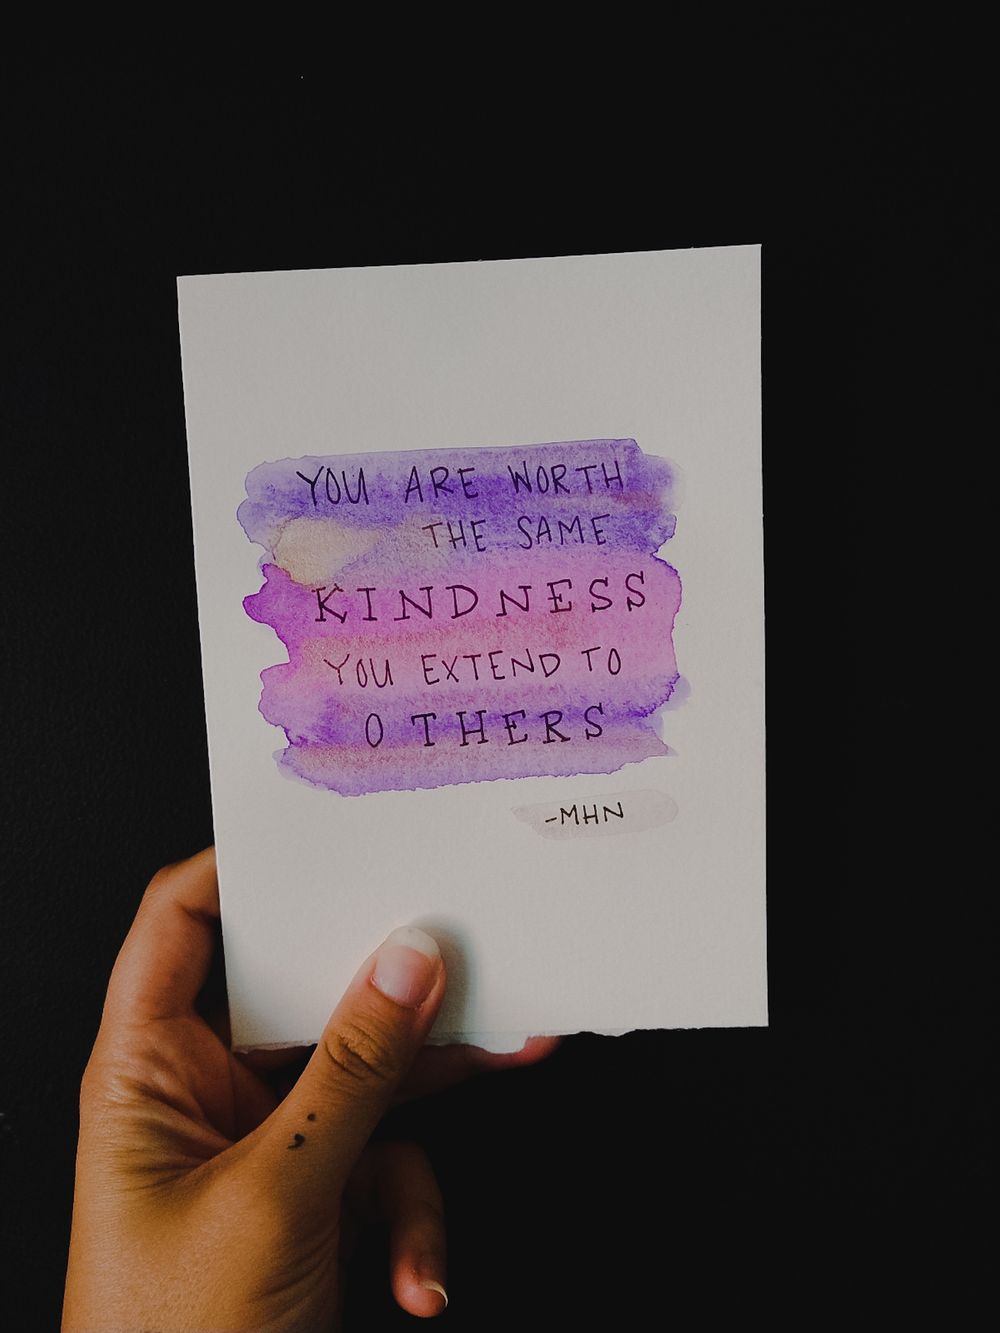 YOU ARE WORTH
THE SAME
KINDNESS
YOU EXTEND TO
OTHERS
-MHN